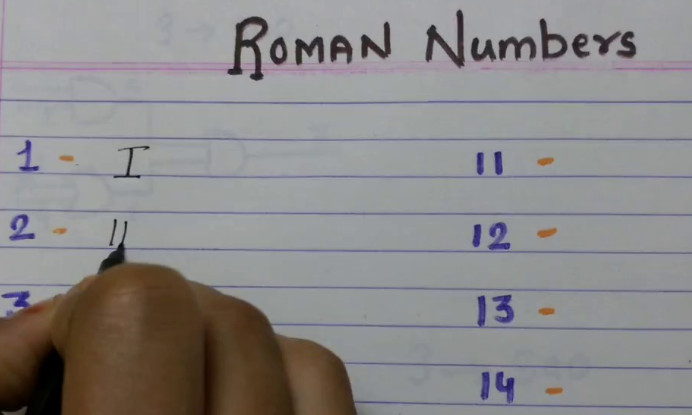 ROMAN Numbers
1 - I
11 -
2 - II
12 -
3
13 -
14 -